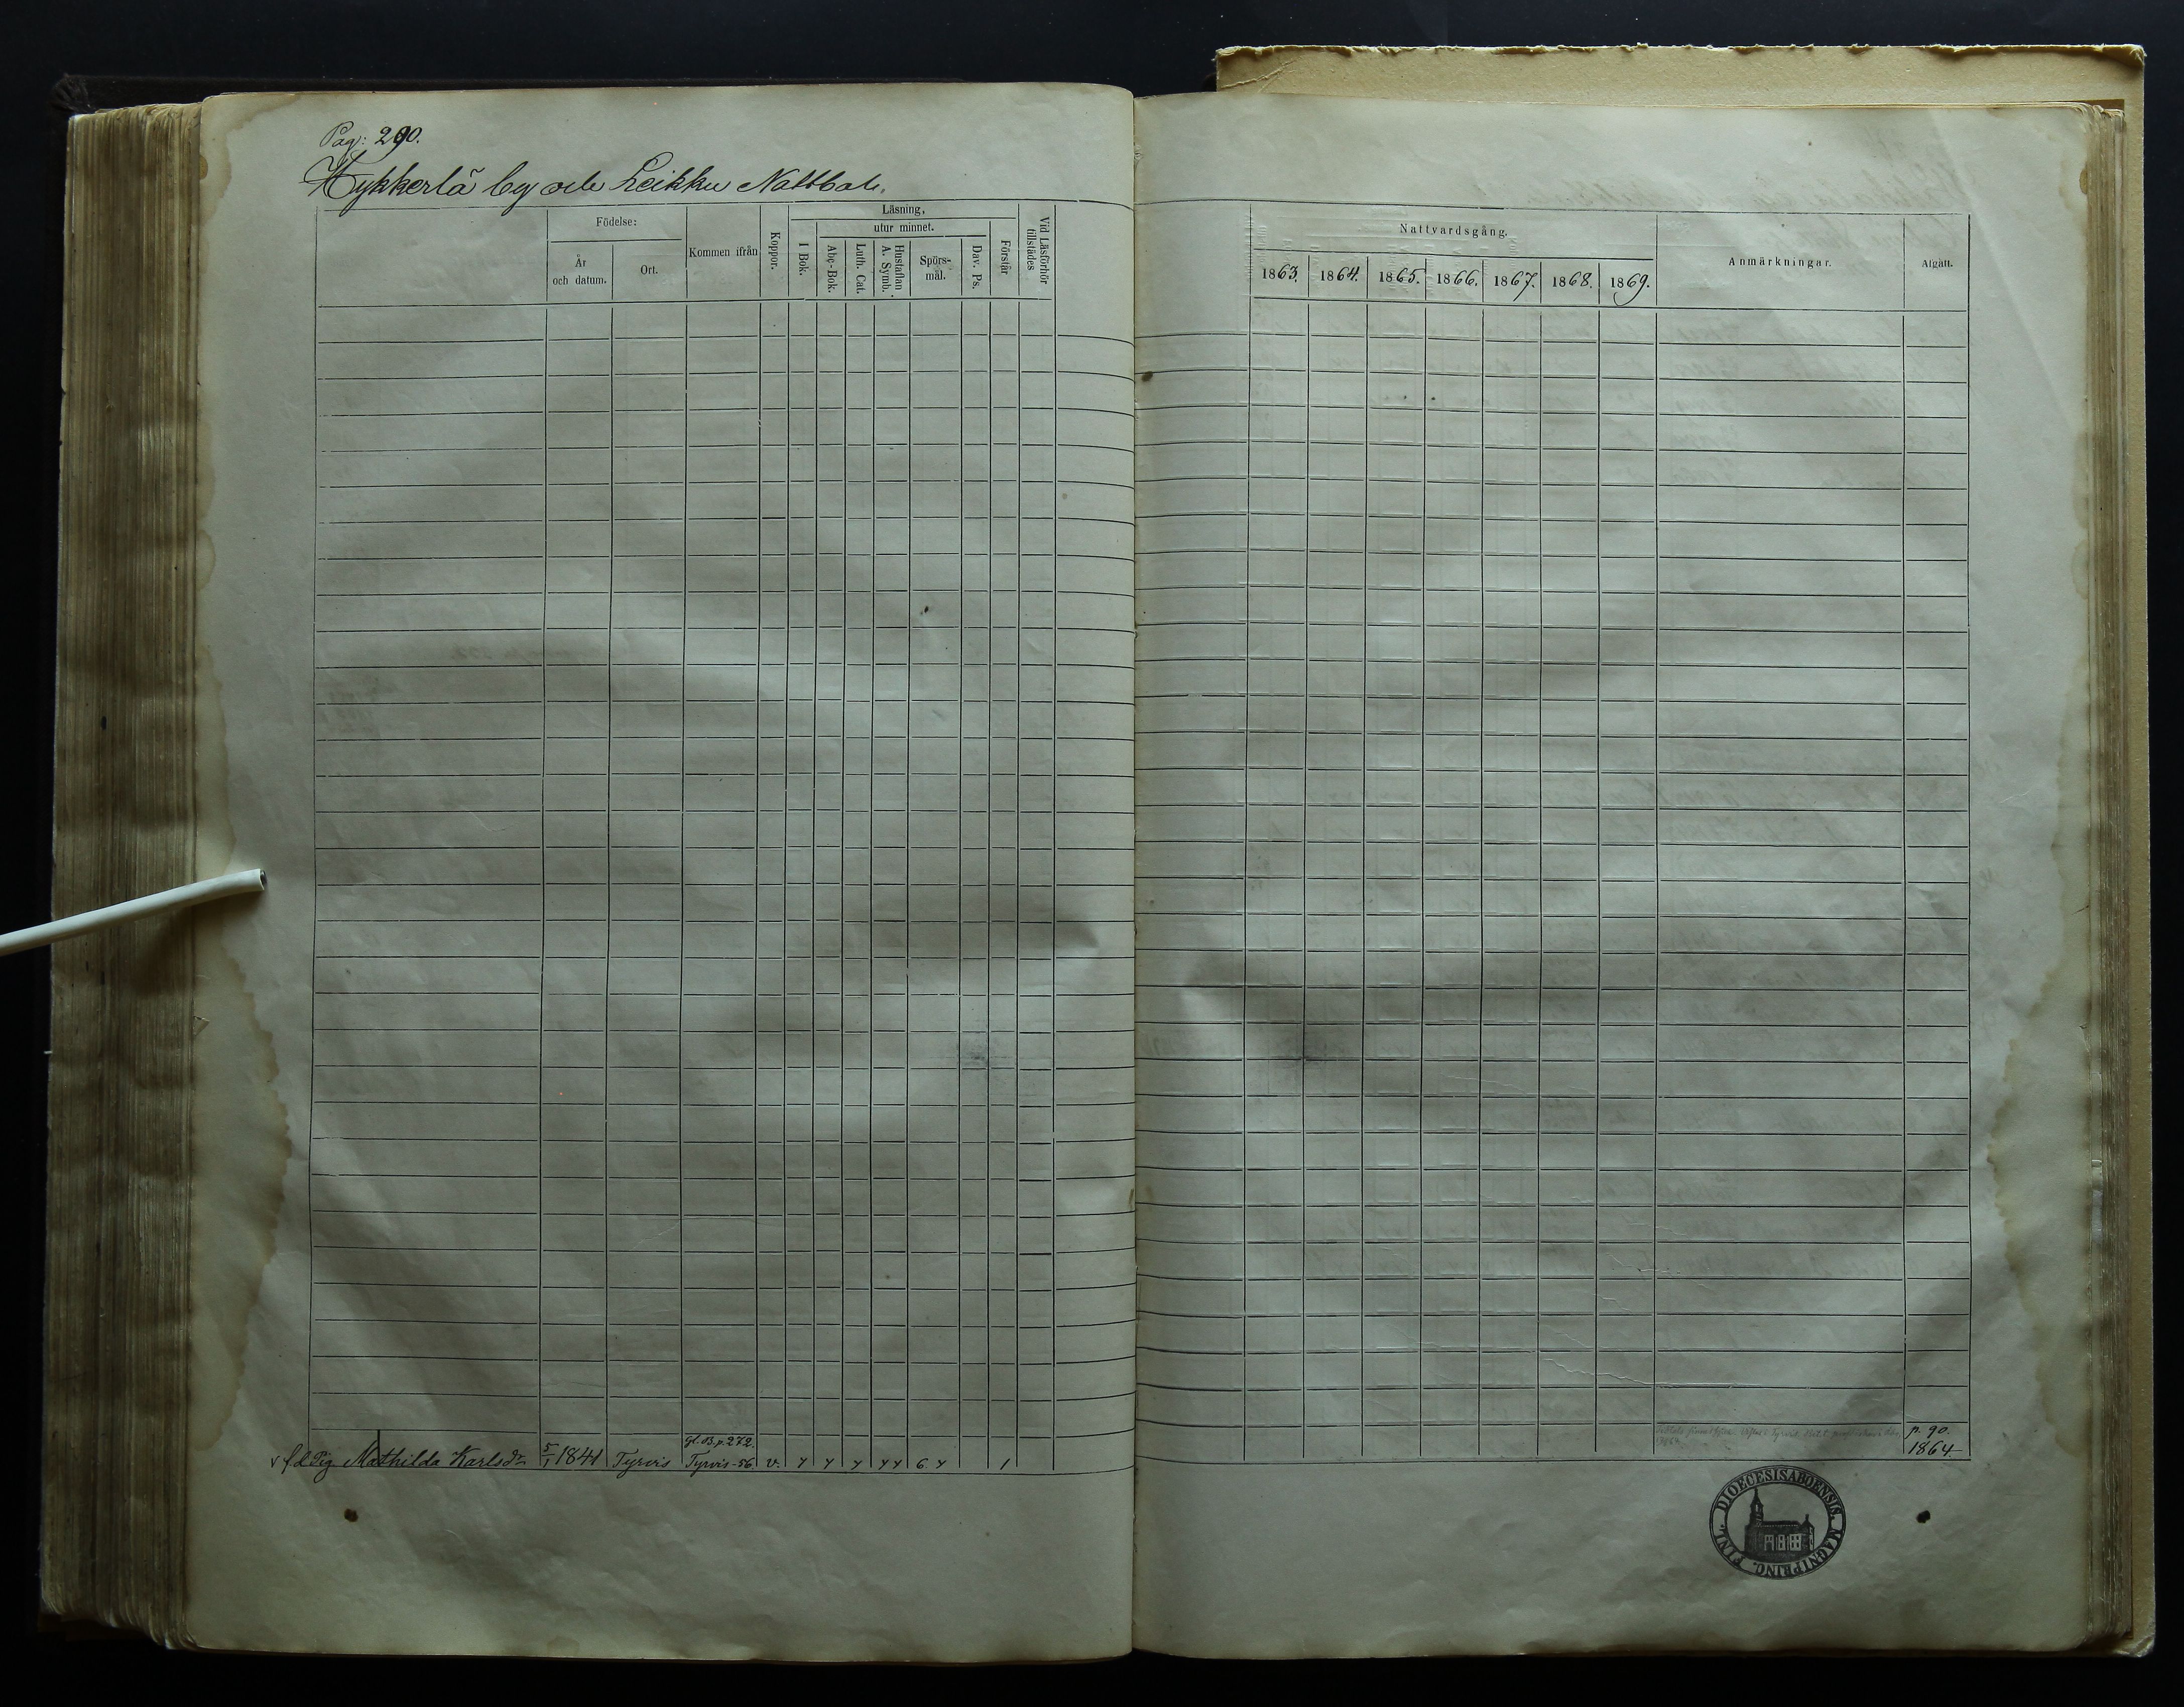 Pag: 290.
Hykkerlä by och Leikku Nattbole.
Födelse:
År och datum.
Ort.
Kommen ifrån
Koppor.
Läsning,
I Bok.
utur minnet.
Abc-Bok.
Luth. Cat.
Hustaflan A. Symb.
Spörs-mål.
Dav. Ps.
Förstår
Vid Läsförhör tillstädes
Nattvardsgång.
1863. 1864. 1865. 1866. 1867. 1868. 1869.
Anmärkningar.
Afgått.
gl. B. p. 272.
v f d Pig Mathilda Karlsdr 5/1 1841 Tyrvis Tyrvis -56 v.
p. 90.
1864
FINL. DIOECESIS ABOENSIS. MAGNI PRINC.